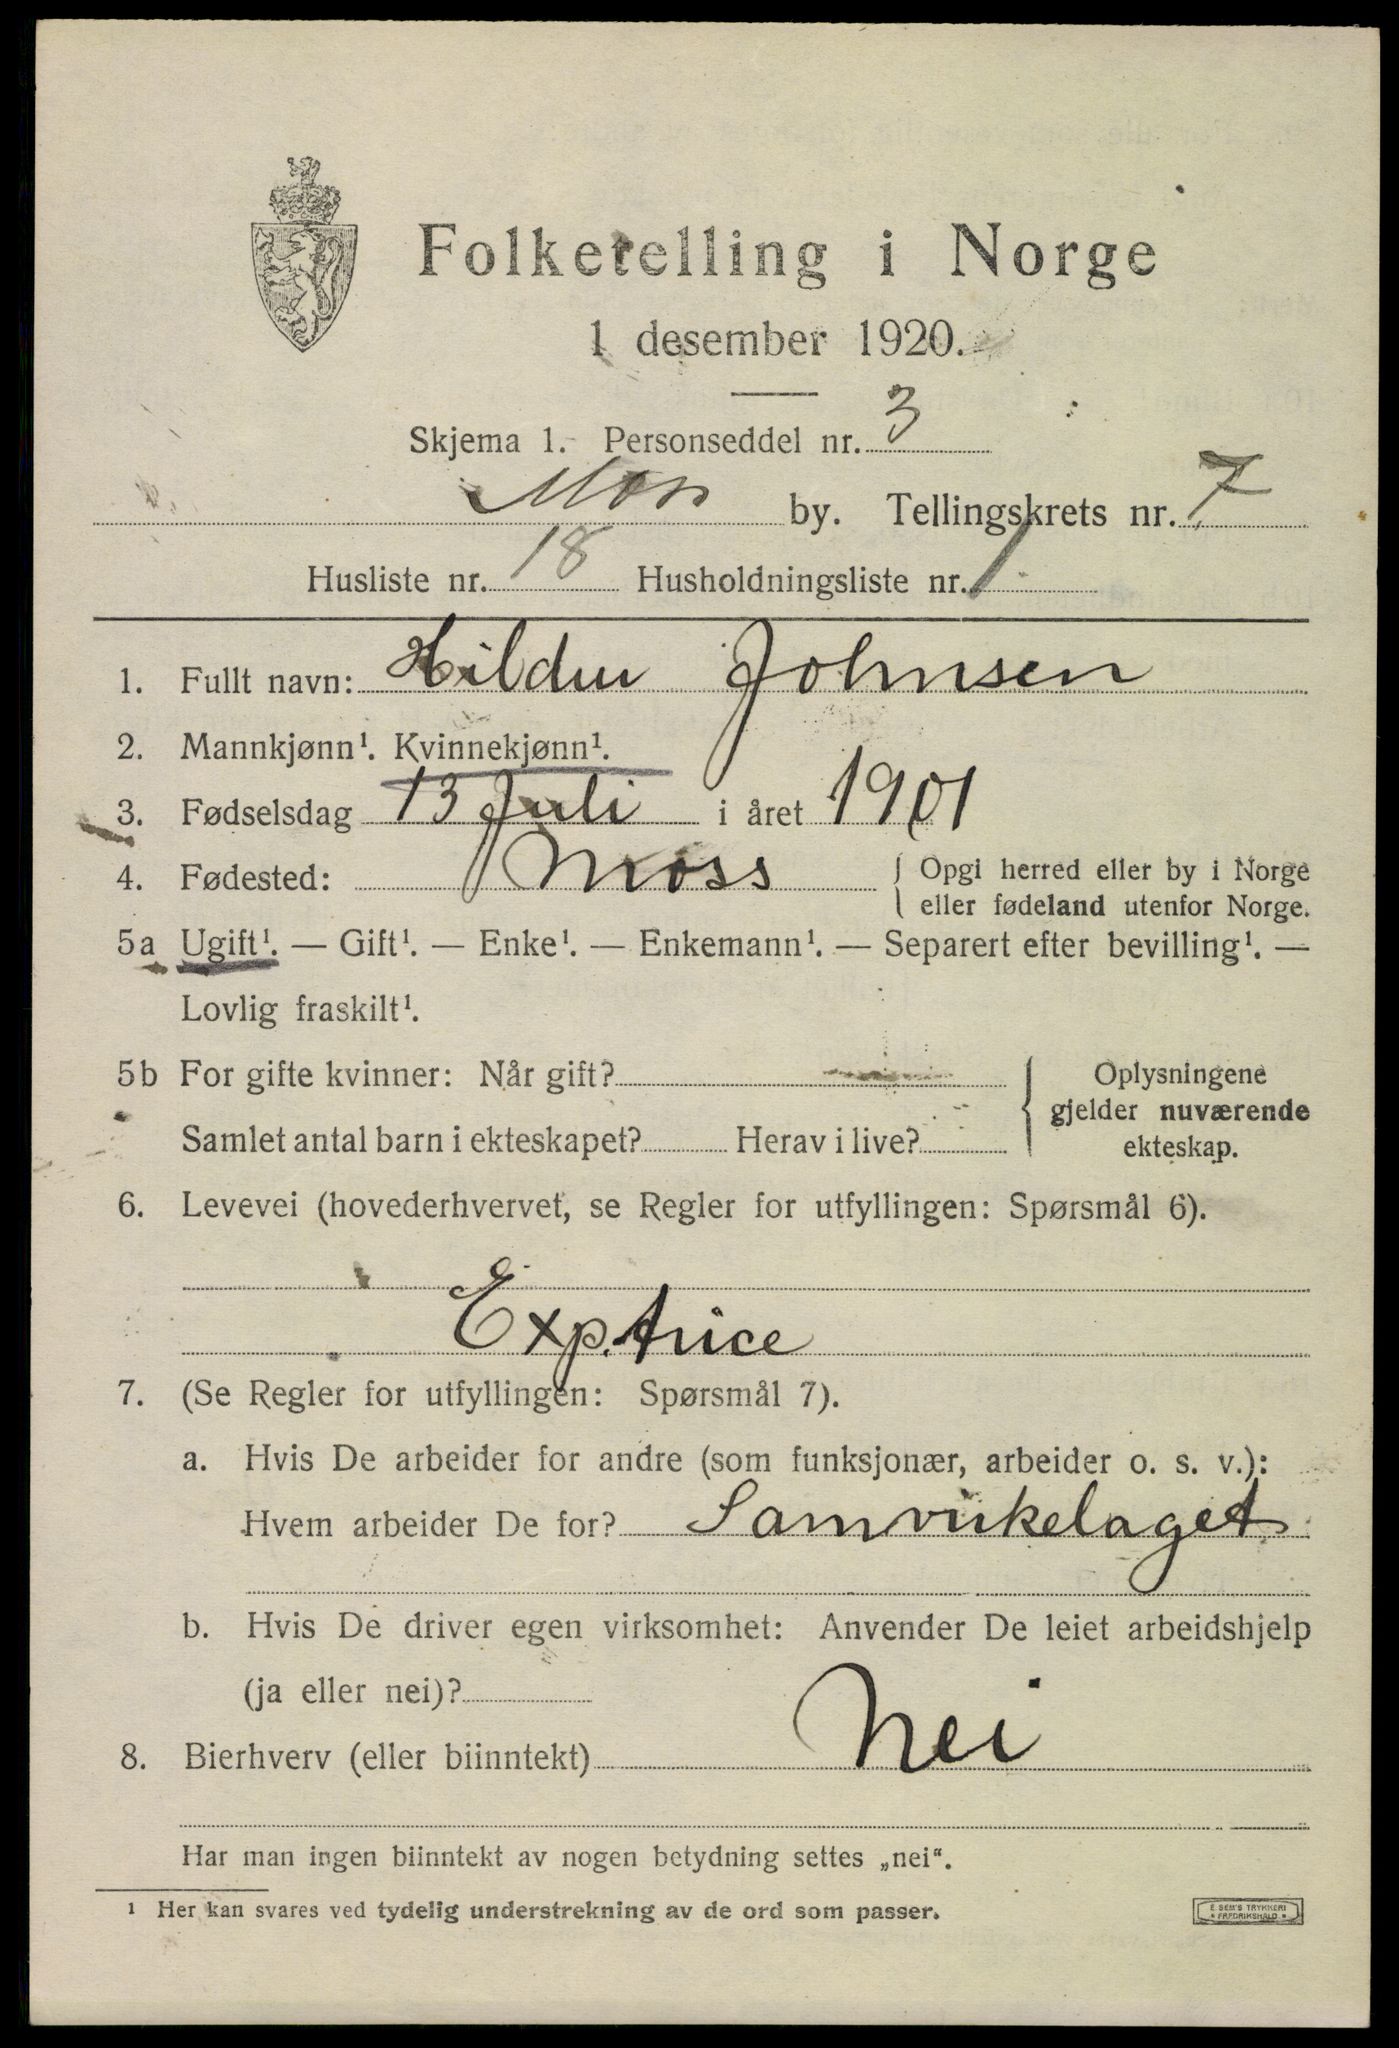 Folketelling i Norge
1 desember 1920.
Skjema 1. Personseddel nr. 3
Moss by. Tellingskrets nr. 7
Husliste nr. 18 Husholdningsliste nr. 1
1. Fullt navn: Hildur Johnsen
2. Mannkjønn¹. Kvinnekjønn¹.
3. Fødselsdag 13 Juli i året 1901
4. Fødested: Moss { Opgi herred eller by i Norge
eller fødeland utenfor Norge.
5a Ugift¹. — Gift¹. — Enke¹. — Enkemann¹. — Separert efter bevilling¹. —
Lovlig fraskilt¹.
5b For gifte kvinner: Når gift?
Samlet antal barn i ekteskapet? Herav i live?
{ Oplysningene
gjelder nuværende
ekteskap.
6. Levevei (hovederhvervet, se Regler for utfyllingen: Spørsmål 6).
Exp.trice
7. (Se Regler for utfyllingen: Spørsmål 7).
a. Hvis De arbeider for andre (som funksjonær, arbeider o. s. v.):
Hvem arbeider De for? Samvirkelaget
b. Hvis De driver egen virksomhet: Anvender De leiet arbeidshjelp
(ja eller nei)?
8. Bierhverv (eller biinntekt) Nei
Har man ingen biinntekt av nogen betydning settes „nei“.
¹ Her kan svares ved tydelig understrekning av de ord som passer.
E. SEM'S TRYKKERI
• FREDRIKSHALD •